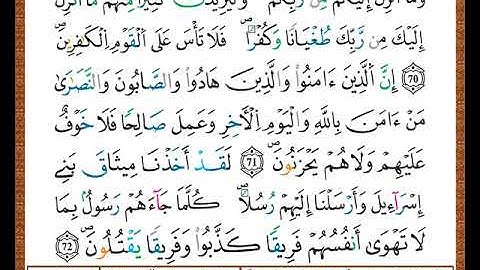 إِلَيْكَ مِن رَّبِّكَ طُغْيَٰنًا وَكُفْرًاۖ فَلَا تَأْسَ عَلَى الْقَوْمِ الْكَٰفِرِينَ
٧٠ إِنَّ الَّذِينَ ءَامَنُوا۟ وَالَّذِينَ هَادُوا۟ وَالصَّابُونَ وَالنَّصَٰرَىٰ
مَنْ ءَامَنَ بِاللَّهِ وَالْيَوْمِ الْأَخِرِ وَعَمِلَ صَٰلِحًا فَلَا خَوْفٌ
عَلَيْهِمْ وَلَا هُمْ يَحْزَنُونَ ٧١ لَقَدْ أَخَذْنَا مِيثَٰقَ بَنِے
إِسْرَآءِيلَ وَأَرْسَلْنَا إِلَيْهِمْ رُسُلًاۖ كُلَّمَا جَآءَهُمْ رَسُولُۢ بِمَا
لَا تَهْوَىٰ أَنفُسُهُمْ فَرِيقًا كَذَّبُوا۟ وَفَرِيقًا يَقْتُلُونَ ٧٢